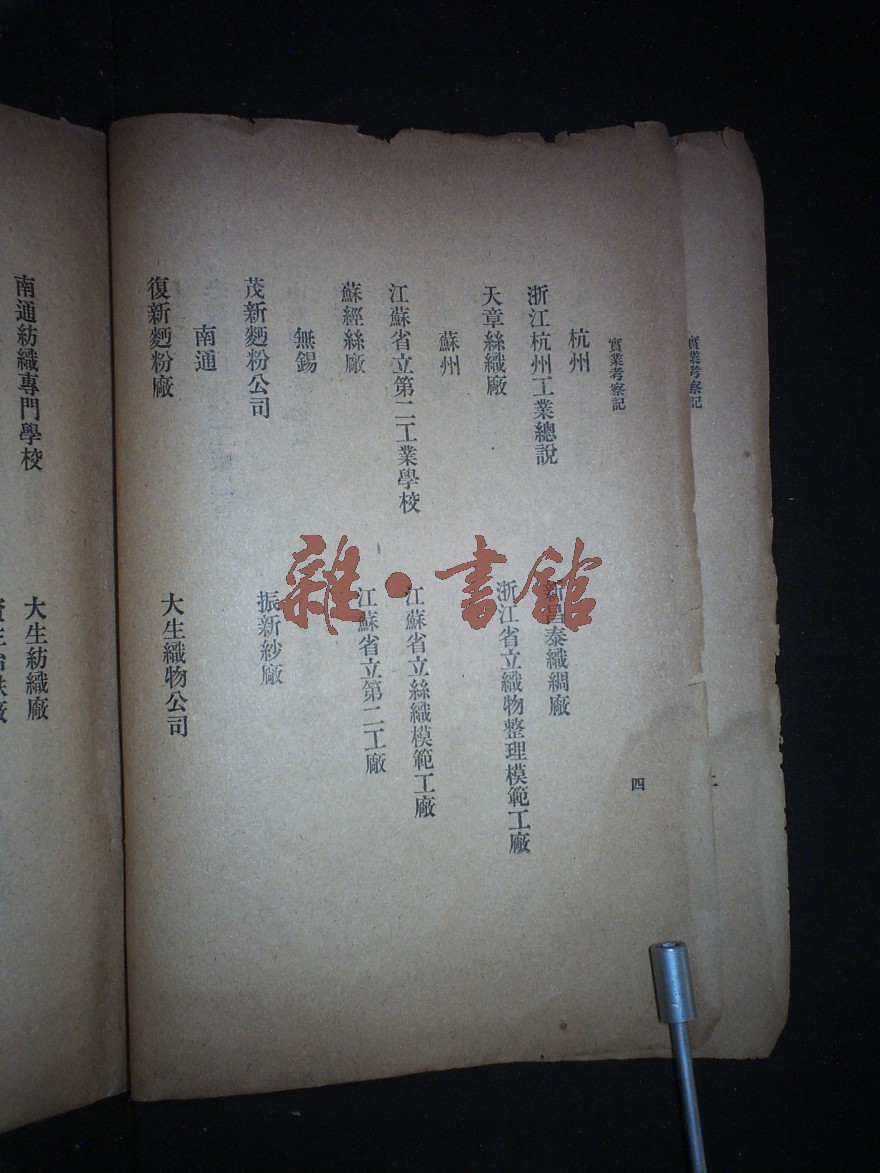 實業考察記
二
實業考察記
四
杭州
浙江杭州工業總說
新昌泰織綢廠
天章絲織廠
浙江省立織物整理模範工廠
蘇州
江蘇省立第二工業學校
江蘇省立絲織模範工廠
蘇經絲廠
江蘇省立第二工廠
無錫
茂新麪粉公司
振新紗廠
南通
復新麪粉廠
大生織物公司
南通紡織專門學校
大生紡織廠
雜·書館